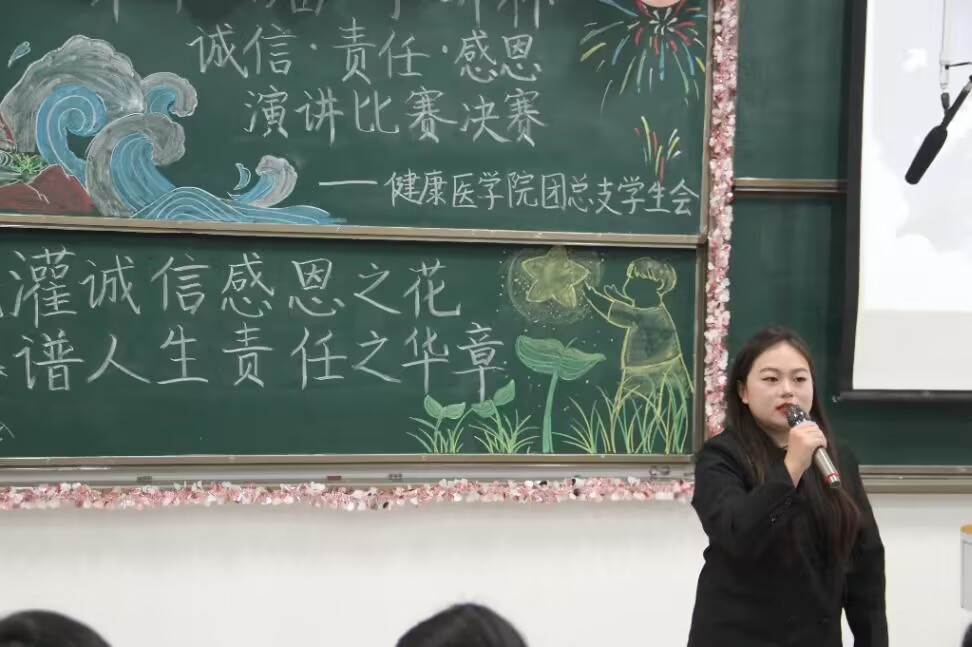 诚信·责任·感恩
演讲比赛决赛
——健康医学院团总支学生会
灌诚信感恩之花
谱人生责任之华章